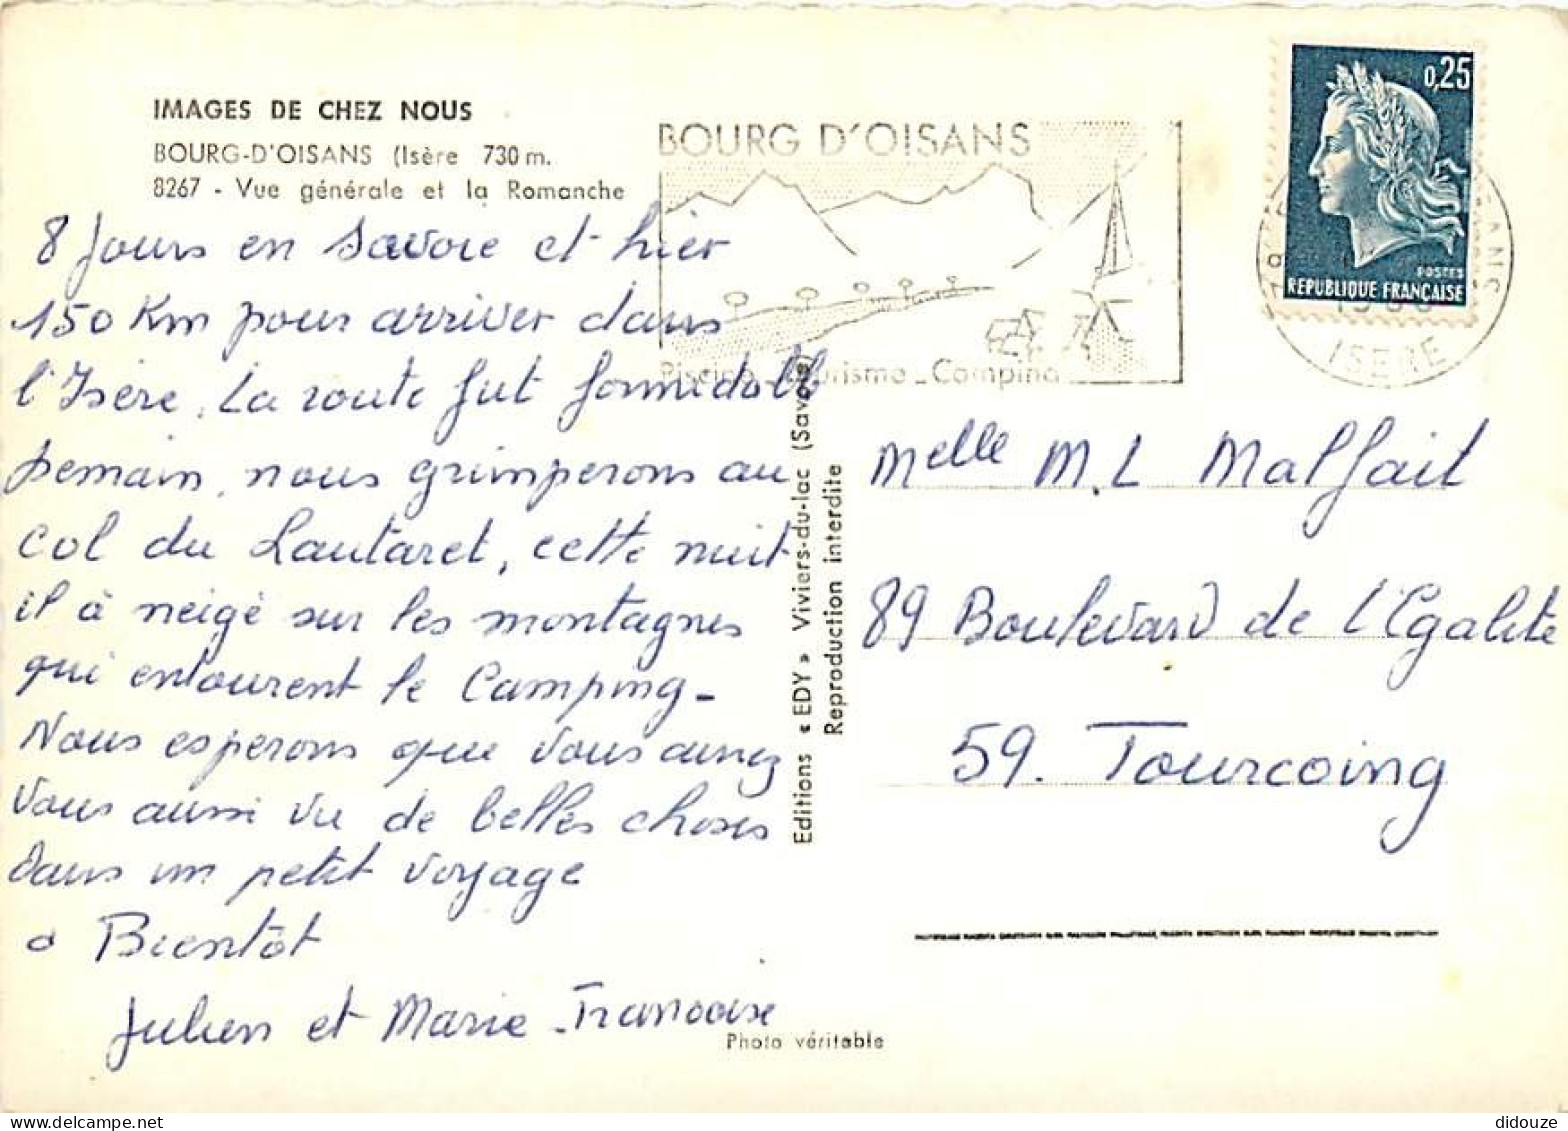 IMAGES DE CHEZ NOUS
BOURG-D'OISANS (Isère 730 m.
8267 - Vue générale et la Romanche
8 jours en Savoie et hier
150 Km pour arriver dans
l'Isère. La route fut formidable
Demain, nous grimperons au
col du Lautaret, cette nuit
il à neigé sur les montagnes
qui entourent le Camping -
Nous esperons que vous aurez
vous aussi vu de belles choses
dans un petit voyage
a Bientôt
Julien et Marie-Francoise
Editions « EDY » Viviers-du-lac (Savoie)
Reproduction interdite
Photo véritable
BOURG D'OISANS
Piscine - Tourisme - Camping
0,25
POSTES
REPUBLIQUE FRANÇAISE
ISERE
Melle M.L Malfait
89 Boulevard de l'Egalite
59. Tourcoing
didouze